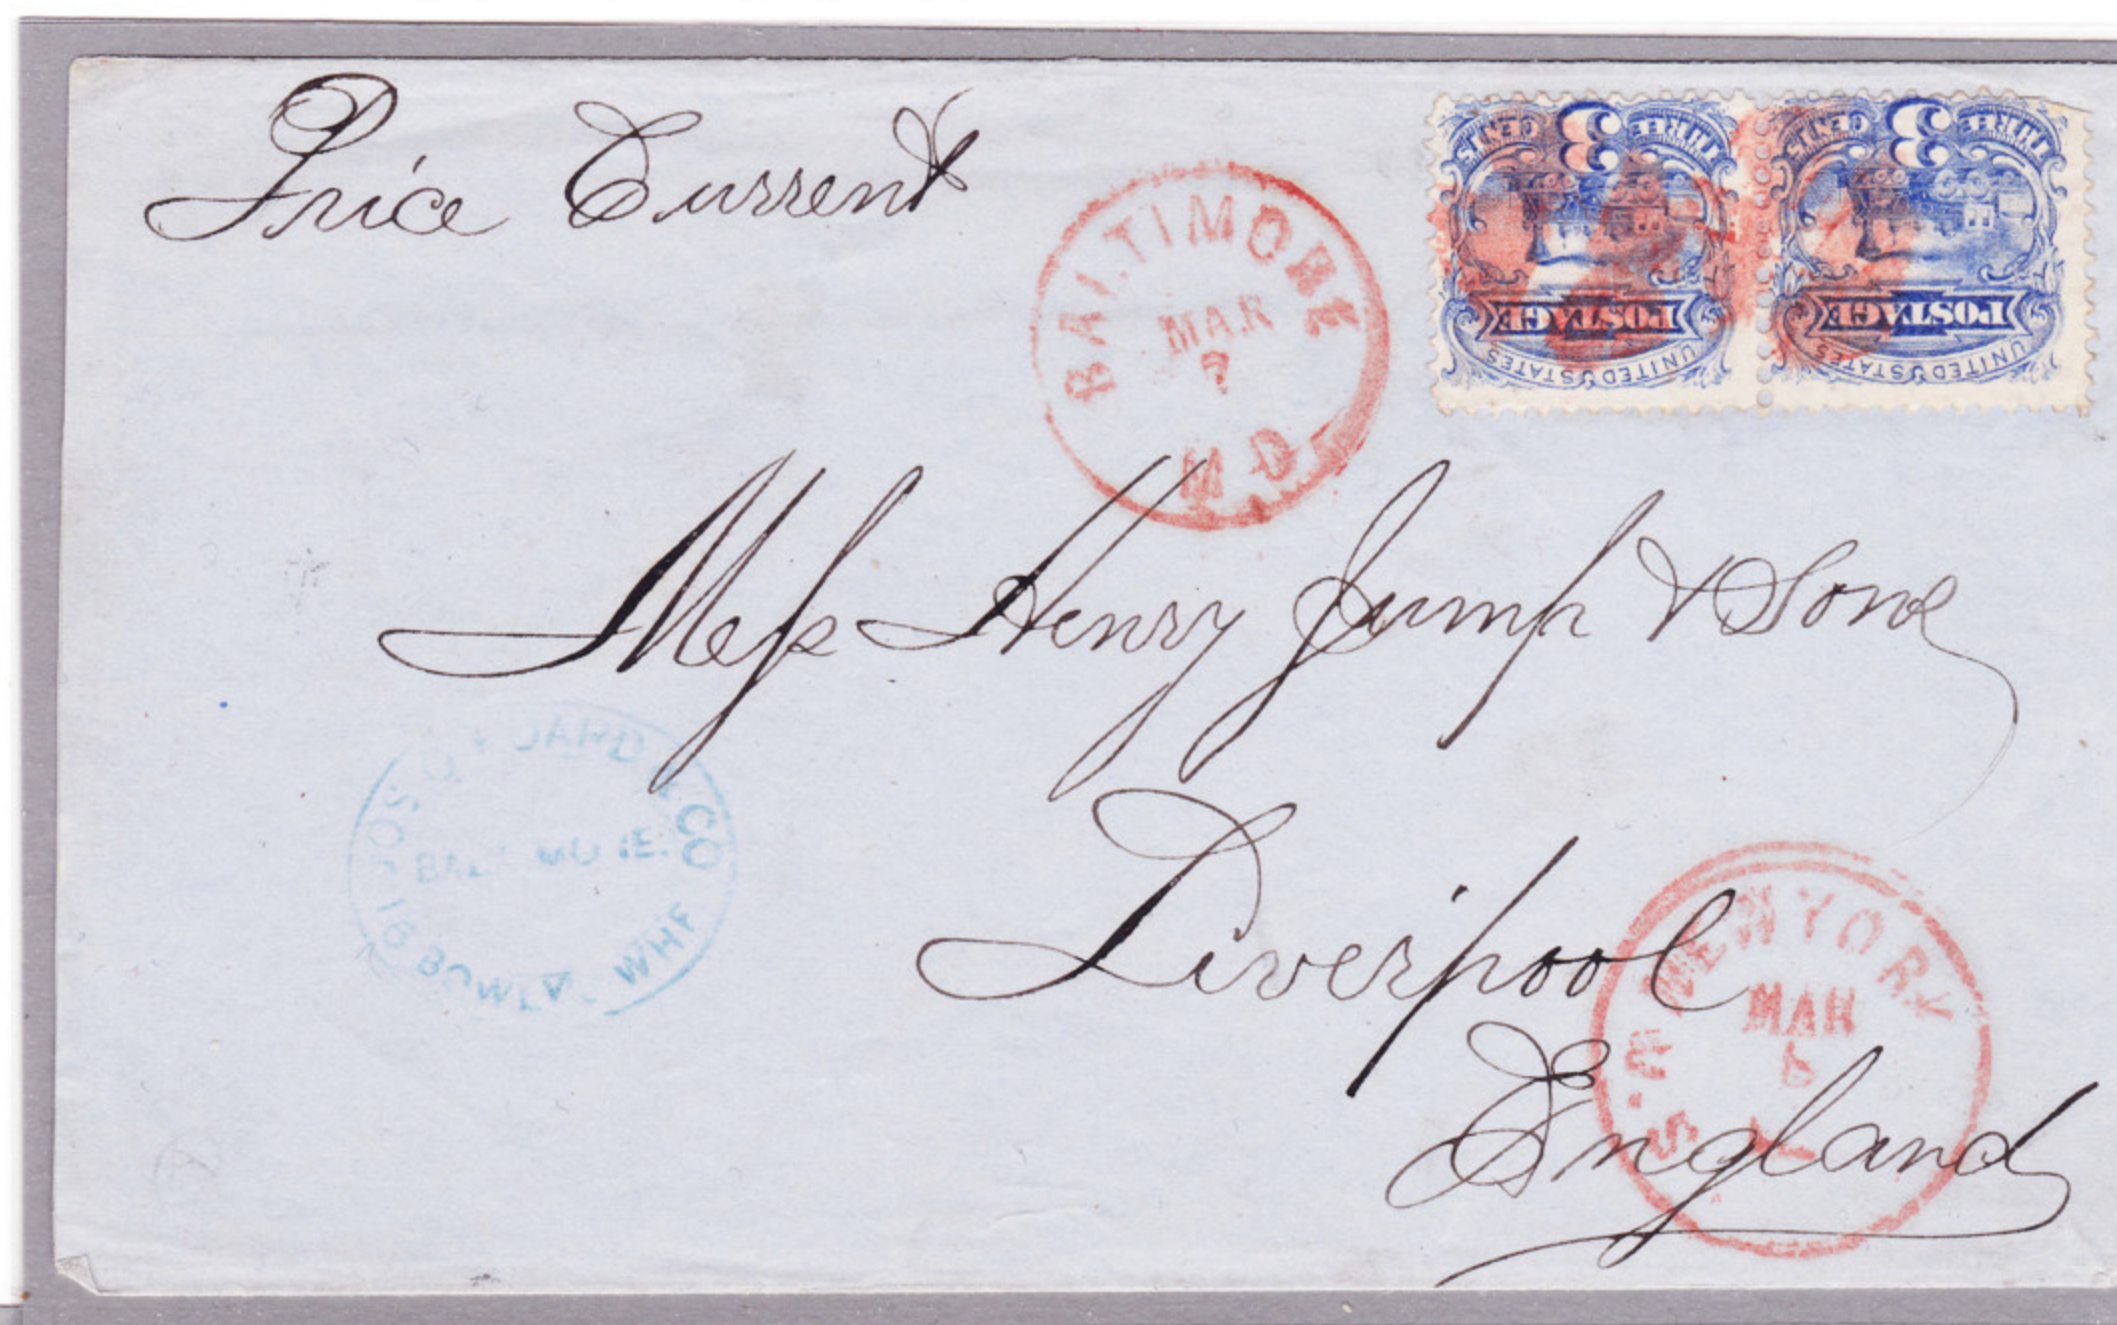 Price Current
BALTIMORE
MAR
7
MD
THREE 3 CENTS
POSTAGE
UNITED STATES
THREE 3 CENTS
POSTAGE
UNITED STATES
Mess Henry Jump & Sons
Liverpool
England
& CO
BOWLY WHF
NEW YORK
MAR